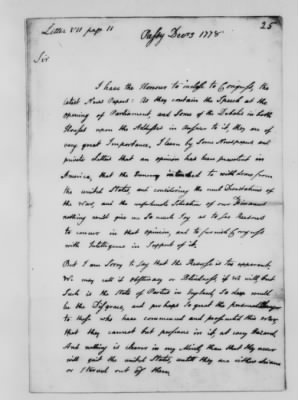 Letter VII page 11
25
Passy Decr 3 1778
Sir
I have the Honour to inclose to Congress, the
latest News Papers: As they contain the Speech at the
opening of Parliament, and Some of the Debates in both
Houses upon the Addresses in Answer to it, they are of
very great Importance, I learn by Some Newspapers and
private Letters that an opinion has been prevalent in
America, that the Enemy intended to withdraw from
the united States, and considering the
of the War, and the unfortunate Situation of our
nothing could give me So much Joy as to See Reasons
to concur in that opinion, and to furnish Congress
with Intelligence in Support of it.
But I am Sorry to Say that the Reverse is too apparent,
We may call it obstinacy or Blindness, if we will but
Such is the State of Parties in England, So deep would
be the Disgrace, and perhaps So great the personal Danger
to those who have commenced and prosecuted this War,
that they cannot but persevere in it, at every Hazard
And nothing is clearer in my Mind, than that they never
will quit the united States, until they are either driven
or Starved out of them